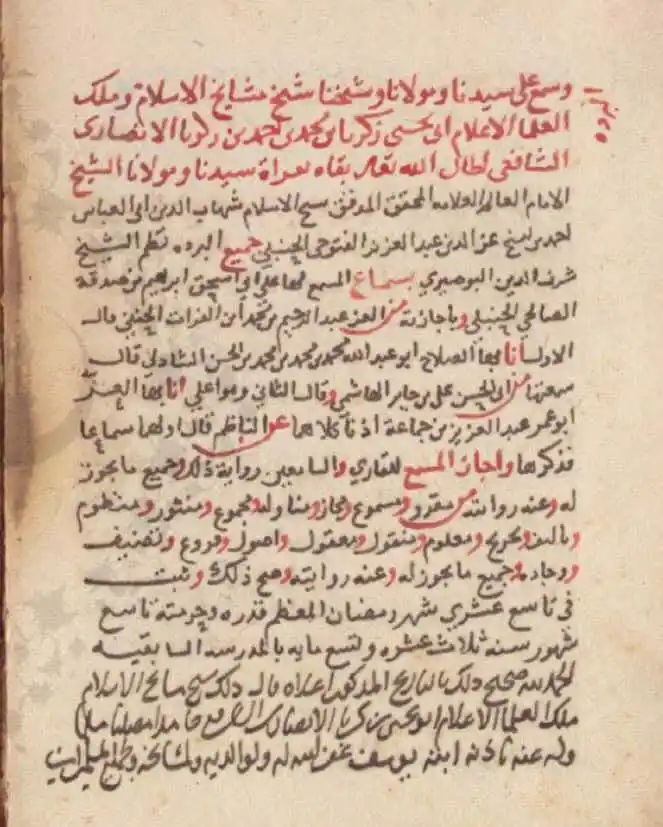 وسمع على سيدنا ومولانا وشيخنا شيخ مشايخ الاسلام وملك
العلما الاعلام ابي يحيى زكريا بن محمد بن احمد بن زكريا الانصاري
الشافعي اطال الله تعالى بقاه بقراة سيدنا ومولانا الشيخ
الامام العالم العلامه المحقق الموفق شيخ الاسلام شهاب الدين ابي العباس
احمد بن الشيخ عز الدين عبد العزيز الفتوحي الحنبلي جميع البرده نظم الشيخ
شرف الدين البوصيري بسماع المسمع لها علي ابي اسحق ابراهيم بن صدقة
الصالحي الحنبلي وباجازته من العز عبد الرحيم بن محمد ابن الفرات الحنفي قال
الاول انا بها الصلاح ابو عبد الله محمد بن محمد بن محمد بن الحسن الشاذلي قال
سمعتها من ابي الحسن علي بن جابر الهاشمي وقال الثاني وهو اعلي انا بها العز
ابو عمر عبد العزيز بن جماعة اذنا كلاهما عن الناظم قال اولهما سماعا
فذكرها واجاز المسمع للقاري والسامعين رواية ذلك وجميع ما يجوز
له وعنه روايته من مقرو ومسموع ومجاز ومناوله ومجموع ومنثور ومنظوم
وتاليف وتخريج ومعلوم ومنقول ومعقول واصول وفروع وتصنيف
ووجاده وجميع ما يجوز له وعنه روايته وصح ذلك وثبت
في تاسع عشري شهر رمضان المعظم قدره وحرمته تاسع
شهور سنة ثلاث عشره وتسع مايه بالمدرسه السابقيه
الحمد لله صحيح ذلك بالتاريخ المذكور اعلاه قال ذلك شيخ مشايخ الاسلام
ملك العلما الاعلام ابو يحيى زكريا الانصاري الشافعي حامدا مصليا مسلما
وله عنه باذنه ابنه يوسف غفر الله له ولوالديه ولمشايخه ولجميع المسلمين امين